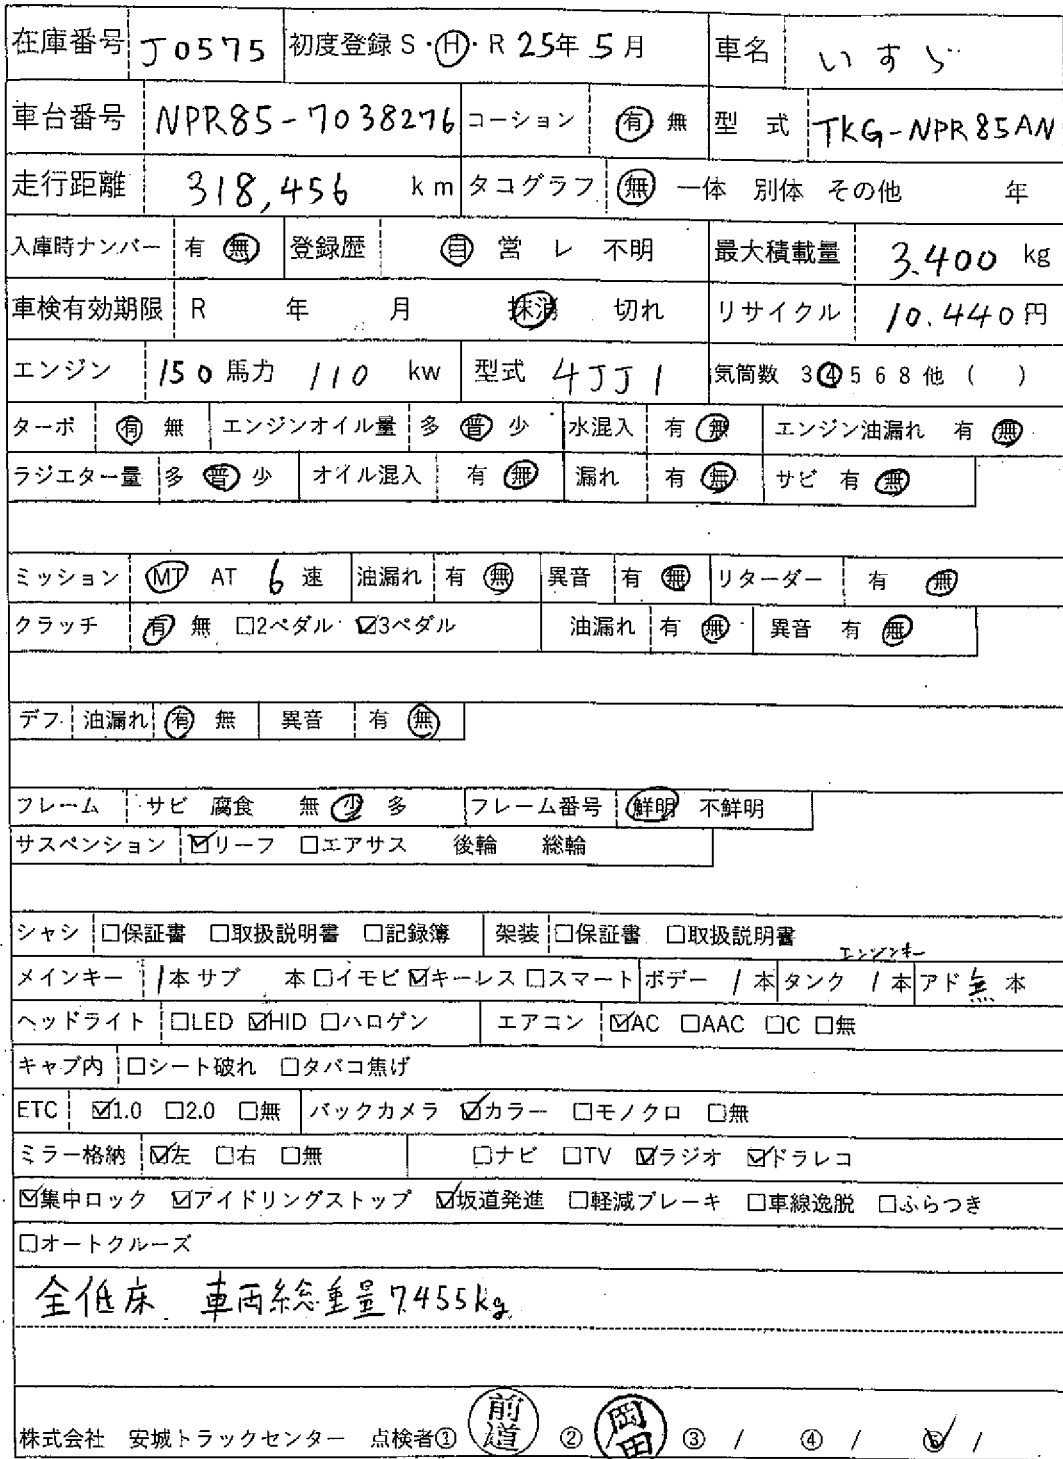 在庫番号 J0575 初度登録 S・Ⓗ・R 25年 5月 車名 いすゞ
車台番号 NPR85-7038276 コーション 有 無 型 式 TKG-NPR85AN
走行距離 318,456 km タコグラフ 無 一体 別体 その他 年
入庫時ナンバー 有 無 登録歴 自 営 レ 不明 最大積載量 3.400 kg
車検有効期限 R 年 月 抹消 切れ リサイクル 10.440円
エンジン 150 馬力 110 kw 型式 4JJ1 気筒数 3 4 5 6 8 他 ( )
ターボ 有 無 エンジンオイル量 多 普 少 水混入 有 無 エンジン油漏れ 有 無
ラジエター量 多 普 少 オイル混入 有 無 漏れ 有 無 サビ 有 無
ミッション MT AT 6 速 油漏れ 有 無 異音 有 無 リターダー 有 無
クラッチ 有 無 □2ペダル ☑3ペダル 油漏れ 有 無 異音 有 無
デフ 油漏れ 有 無 異音 有 無
フレーム サビ 腐食 無 少 多 フレーム番号 鮮明 不鮮明
サスペンション ☑リーフ □エアサス 後輪 総輪
シャシ □保証書 □取扱説明書 □記録簿 架装 □保証書 □取扱説明書
エンジンキー
メインキー 1本 サブ 本 □イモビ ☑キーレス □スマート ボデー 1本 タンク 1本 アド 無 本
ヘッドライト □LED ☑HID □ハロゲン エアコン ☑AC □AAC □C □無
キャブ内 □シート破れ □タバコ焦げ
ETC ☑1.0 □2.0 □無 バックカメラ ☑カラー □モノクロ □無
ミラー格納 ☑左 □右 □無 □ナビ □TV ☑ラジオ ☑ドラレコ
☑集中ロック ☑アイドリングストップ ☑坂道発進 □軽減ブレーキ □車線逸脱 □ふらつき
□オートクルーズ
全低床 車両総重量7455kg
株式会社 安城トラックセンター 点検者① 前道 ② 岡田 ③ / ④ / ⑤ /